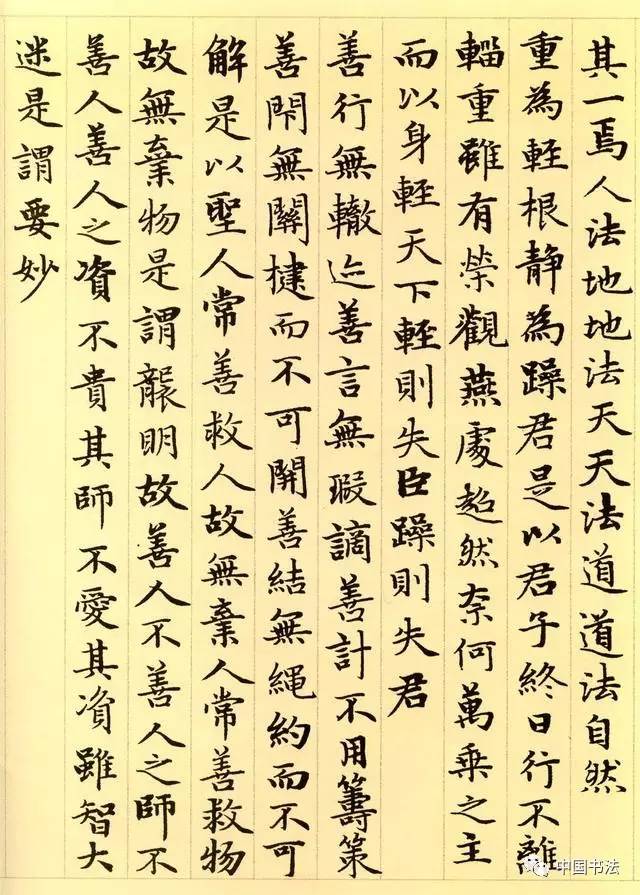 其一焉人法地地法天天法道道法自然
重為輕根静為躁君是以君子終日行不離
輜重雖有榮觀燕處超然奈何萬乘之主
而以身輕天下輕則失臣躁則失君
善行無轍迹善言無瑕謫善計不用籌策
善閇無關楗而不可開善結無繩約而不可
解是以聖人常善救人故無棄人常善救物
故無棄物是謂襲明故善人不善人之師不
善人善人之資不貴其師不愛其資雖智大
迷是謂要妙
中国书法